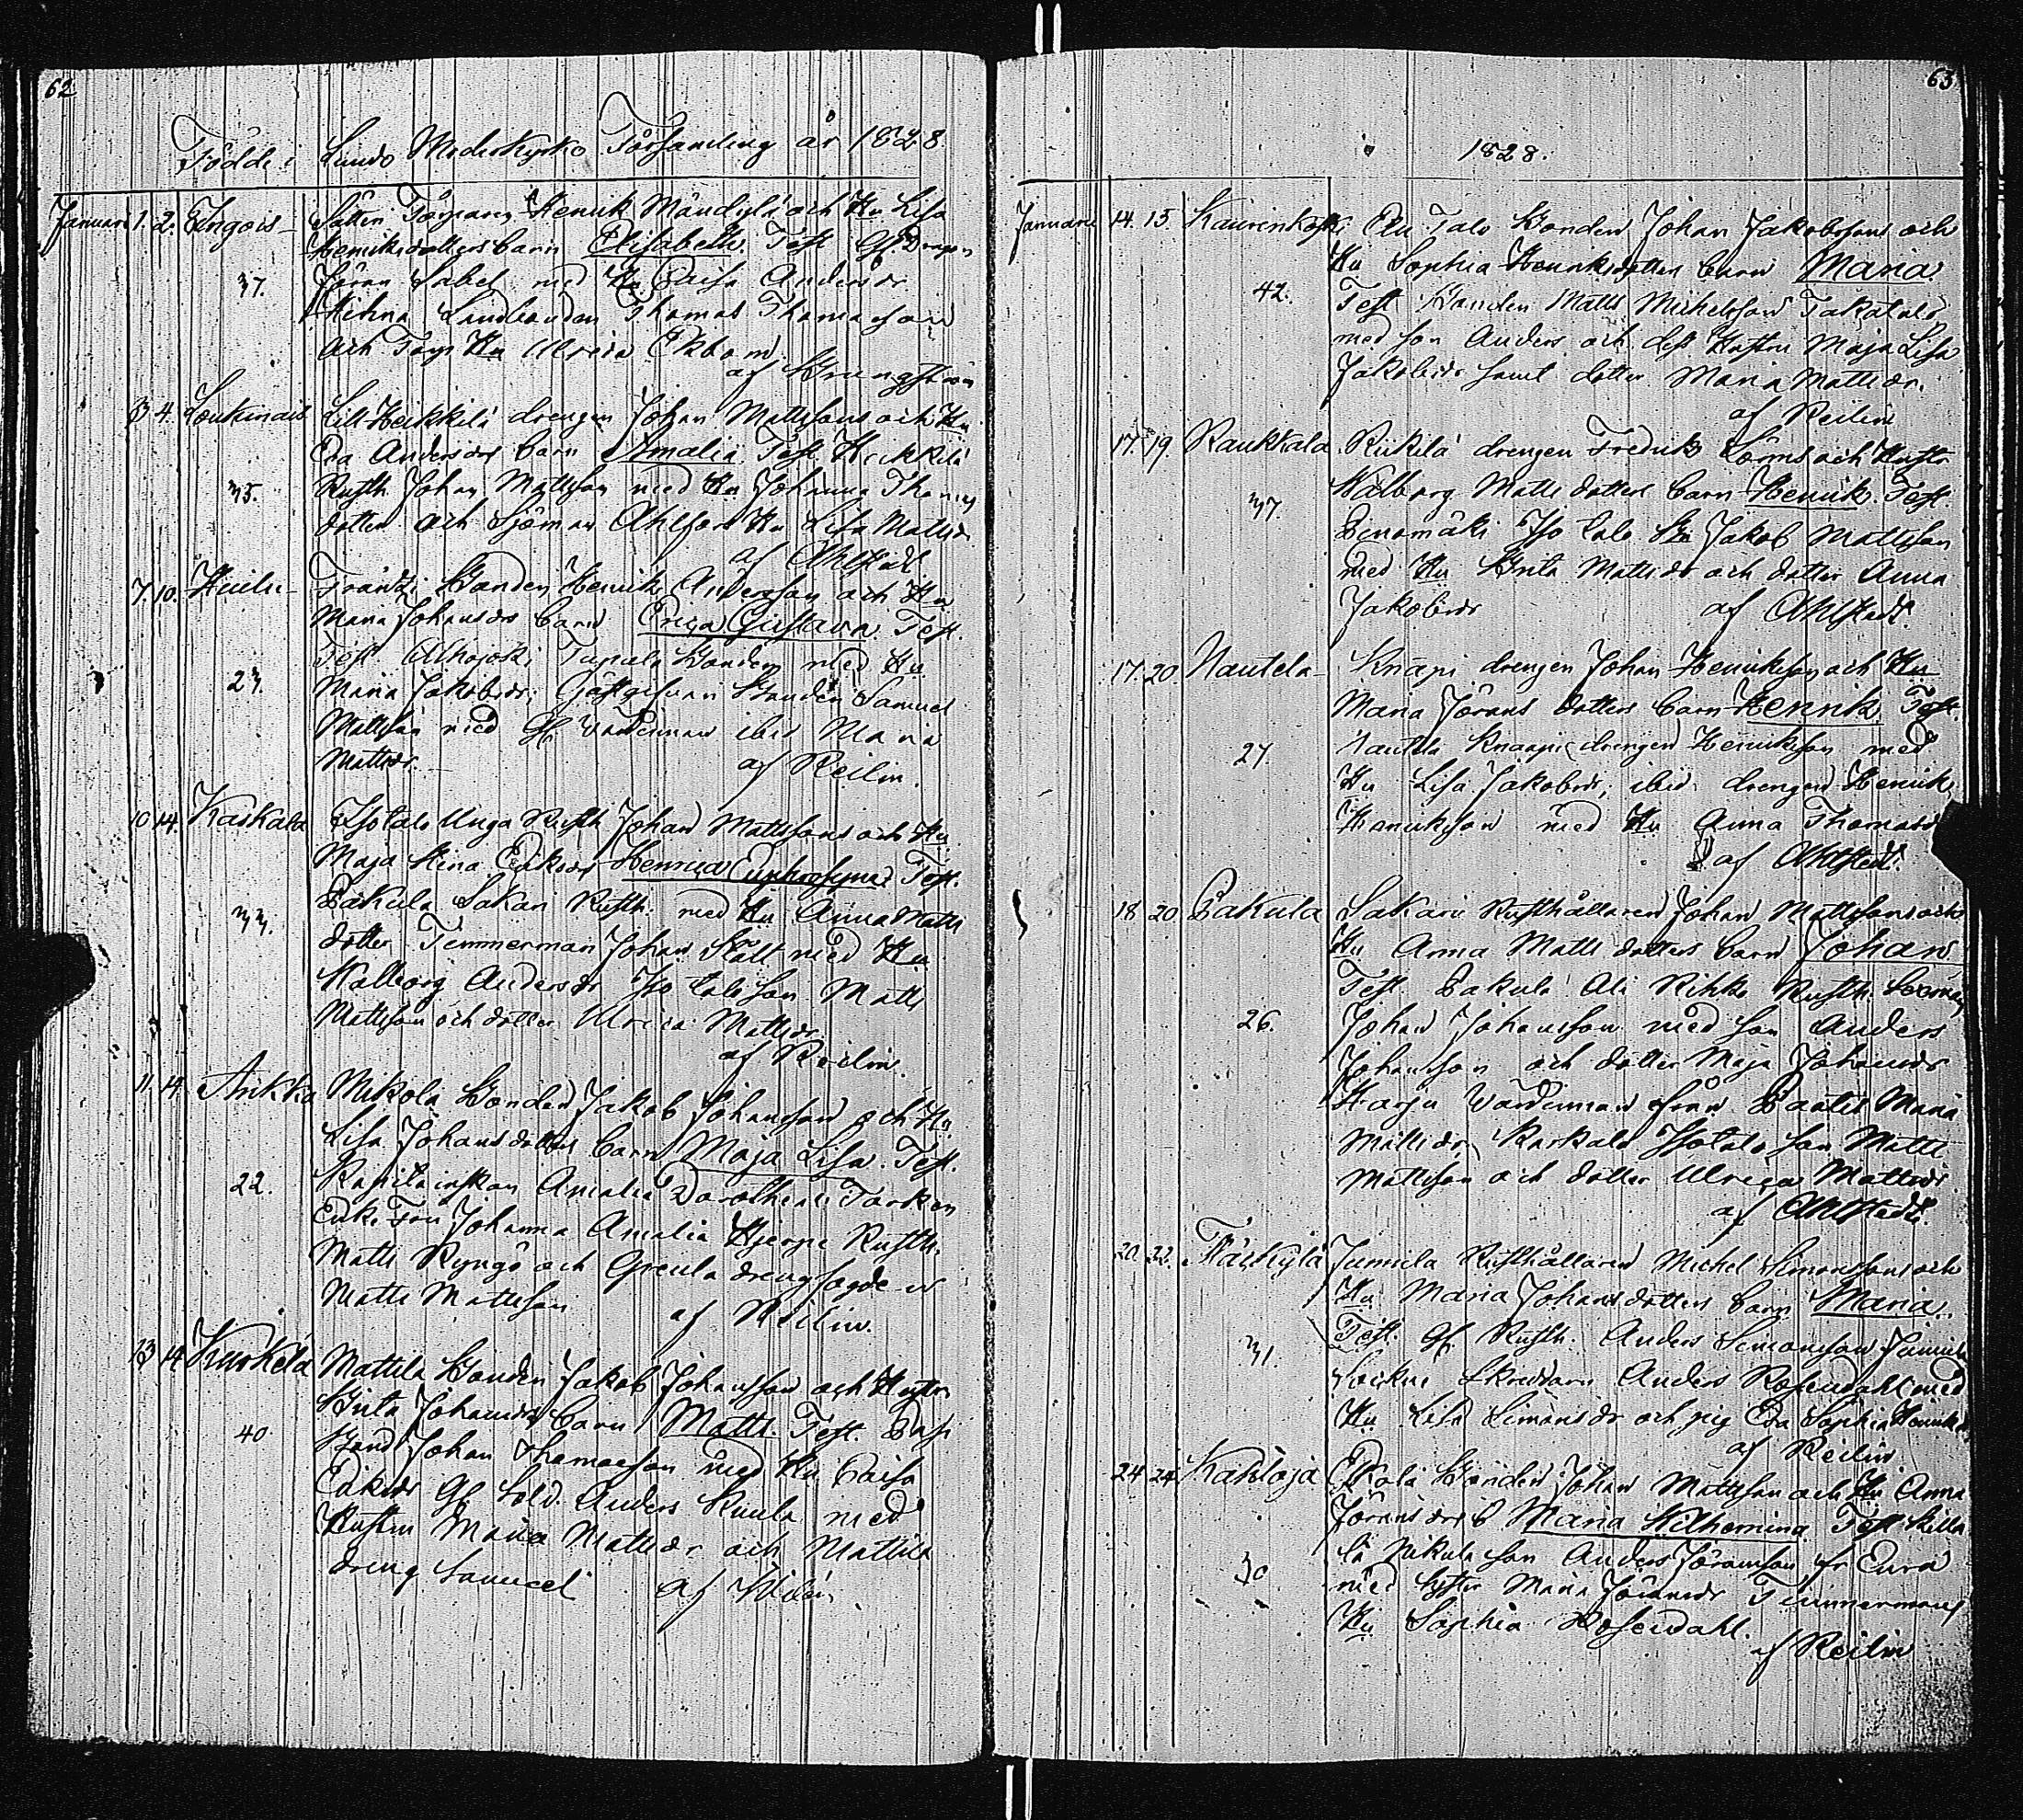 62
Födde i Lundo Moderkyrko Församling år 1828.
Januari 1. 2. Tingois Torparen Henrik och Hu Lisa
Henriksdotters barn Elisabeth. Test. Gf. Dragon
37. Jöran Sabel med Hu Caisa Andersdr
Landbonden Thomas Thomasson
och Torp Hu Ulrica Ekbom
af Brungström
3 4. Loukinais Lill Heikkilä drengen Johan Mattssons och Hu
Eva Andersdrs barn Amalia. Test. Heikkilä
35. Rusth. Johan Mattsson med Hu Johanna Thomas
dotter och Sjöman Ahlfors Hu Lisa Mattsdr
af Ahlstedt
7. 10. Frantsi Bonden Henrik Andersson och Hu
Maria Johansdrs barn Erica Gustava. Test.
Test. Alhojoki Tapala Bonden med Hu
23. Maria Jakobsdr, Gästgifvari Bonden Samuel
Mattsson med Gf. Värdinnan ibid Maria
Mattsdr. af Reilin.
10 14. Kaskala Isotalo Unga Rusth Johan Mattssons och Hu
Maja Stina Eriksdrs Henrica Euphrosyna. Test.
Pakula Sakari Rusth. med Hu Anna Matts
33. dotter Timmerman Johan Slätt med Hu
Walborg Andersdr Iso talo son Matts
Mattsson och dotter Ulrica Mattsdr
af Reilin.
11. 14. Ankka Mikola Bonden Jakob Johansson och Hu
Lisa Johansdotters barn Maja Lisa. Test.
22. Kapitainskan Amalia Dorothea
Enke Fru Johanna Amalia Hjerpe Rusth.
Matts Ryngö och drengfogden
Matts Mattsson af Reilin.
13 14 Kurkela Mattila Bonden Jakob Johansson och Hustru
Brita Johansdrs barn Matts. Test.
40 Bond Johan Thomasson med Hu Caisa
Eriksdr Gf. Sold. Anders Kuula med
Hustru Maria Mattsdr och Mattila
dreng Samuel af Widén.
63
1828.
Januari 14. 15. Kaurinkoski Ali Talo Bonden Johan Jakobssons och
Hu Sophia Henriksdotters barn Maria.
42. Test. Bonden Matts Michelsson Takatalo
med son Anders och dess Hustru Maja Lisa
Jakobsdr samt dotter Maria Mattsdr.
af Reilin
17. 19. Raukkala Riikilä drengen Fredrik Lörns och Hustr
Walborg Matts dotters barn Henrik. Test.
37. Iso talo Bn Jakob Mattsson
med Hu Brita Mattsdr och dotter Anna
Jakobsdr af Ahlstedt.
17. 20 Nautela Knapi drengen Johan Henriksson och Hu
Maria Jörans dotters barn Henrik. Test.
27. Nautela Knaapi drengen Henriksson med
Hu Lisa Jakobsdr, ibid drengen Henrik
Henriksson med Hu Anna Thomasdr
af Ahlstedt.
18 20 Pakula Sakari Rusthållaren Johan Mattssons och
Hu Anna Matts dotters barn Johan.
Test. Pakula Ali Rihko Rusth.
26. Johan Johansson med son Anders
Johansson och dotter Maja Johansdr
Harju Värdinnan från Paatis Maria
Mattsdr, Kaskala Isotalo son Matts
Mattsson och dotter Ulrica Mattsdr
af Ahlstedt.
20. 22. Täckylä Junnila Rusthållaren Michel Simonssons och
Hu Maria Johansdotters barn Maria.
31. Test. Gf. Rusth. Anders Simonsson Junnila
Sockne Skreddaren Anders Rosendahl med
Hu Lisa Simonsdr och pig Eva Sophia Henriksdr
af Reilin
24 24 Kakloja Bonden Johan Mattsson och Hu Anna
Jöransdrs b Maria Wilhemina. Test.
30 Nikula son Anders Jöransson fr Eura
med Syster Maria Jöransdr Timmermans
Hu Sophia Rosendahl.
af Reilin